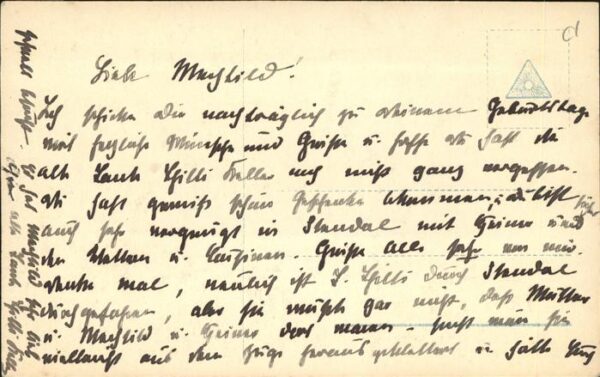 Liebe Mechtild!
Ich schicke Dir nachträglich zu Deinem Geburtstage
viel herzliche Wünsche und Grüße u. hoffe Du hast die
alte Tante Hilli Keller noch nicht ganz vergessen.
Du hast gewiß schöne Geschenke bekommen, u. Du bist sicher
auch sehr vergnügt in Stendal mit Heiner und
den Vettern u. Cousinen. Grüße alle sehr von mir.
Denke mal, neulich ist T. Hilli durch Stendal
durchgefahren, aber sie wußte gar nicht, daß Mutter
u. Mechtild u. Heiner dort waren – sonst wäre sie
vielleicht aus dem Zuge herausgeklettert u. hätte Euch
schnell
Es hat Mechtild sehr lieb
alte Tante Hilli Keller